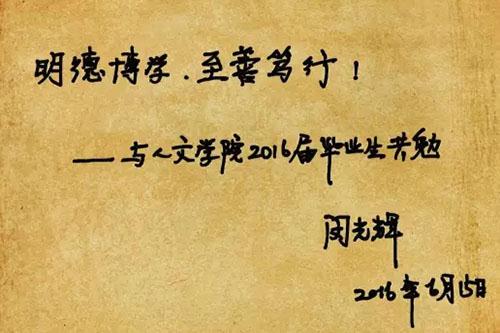 明德博学.至善笃行!
——与人文学院2016届毕业生共勉
闵光辉
2016年6月15日